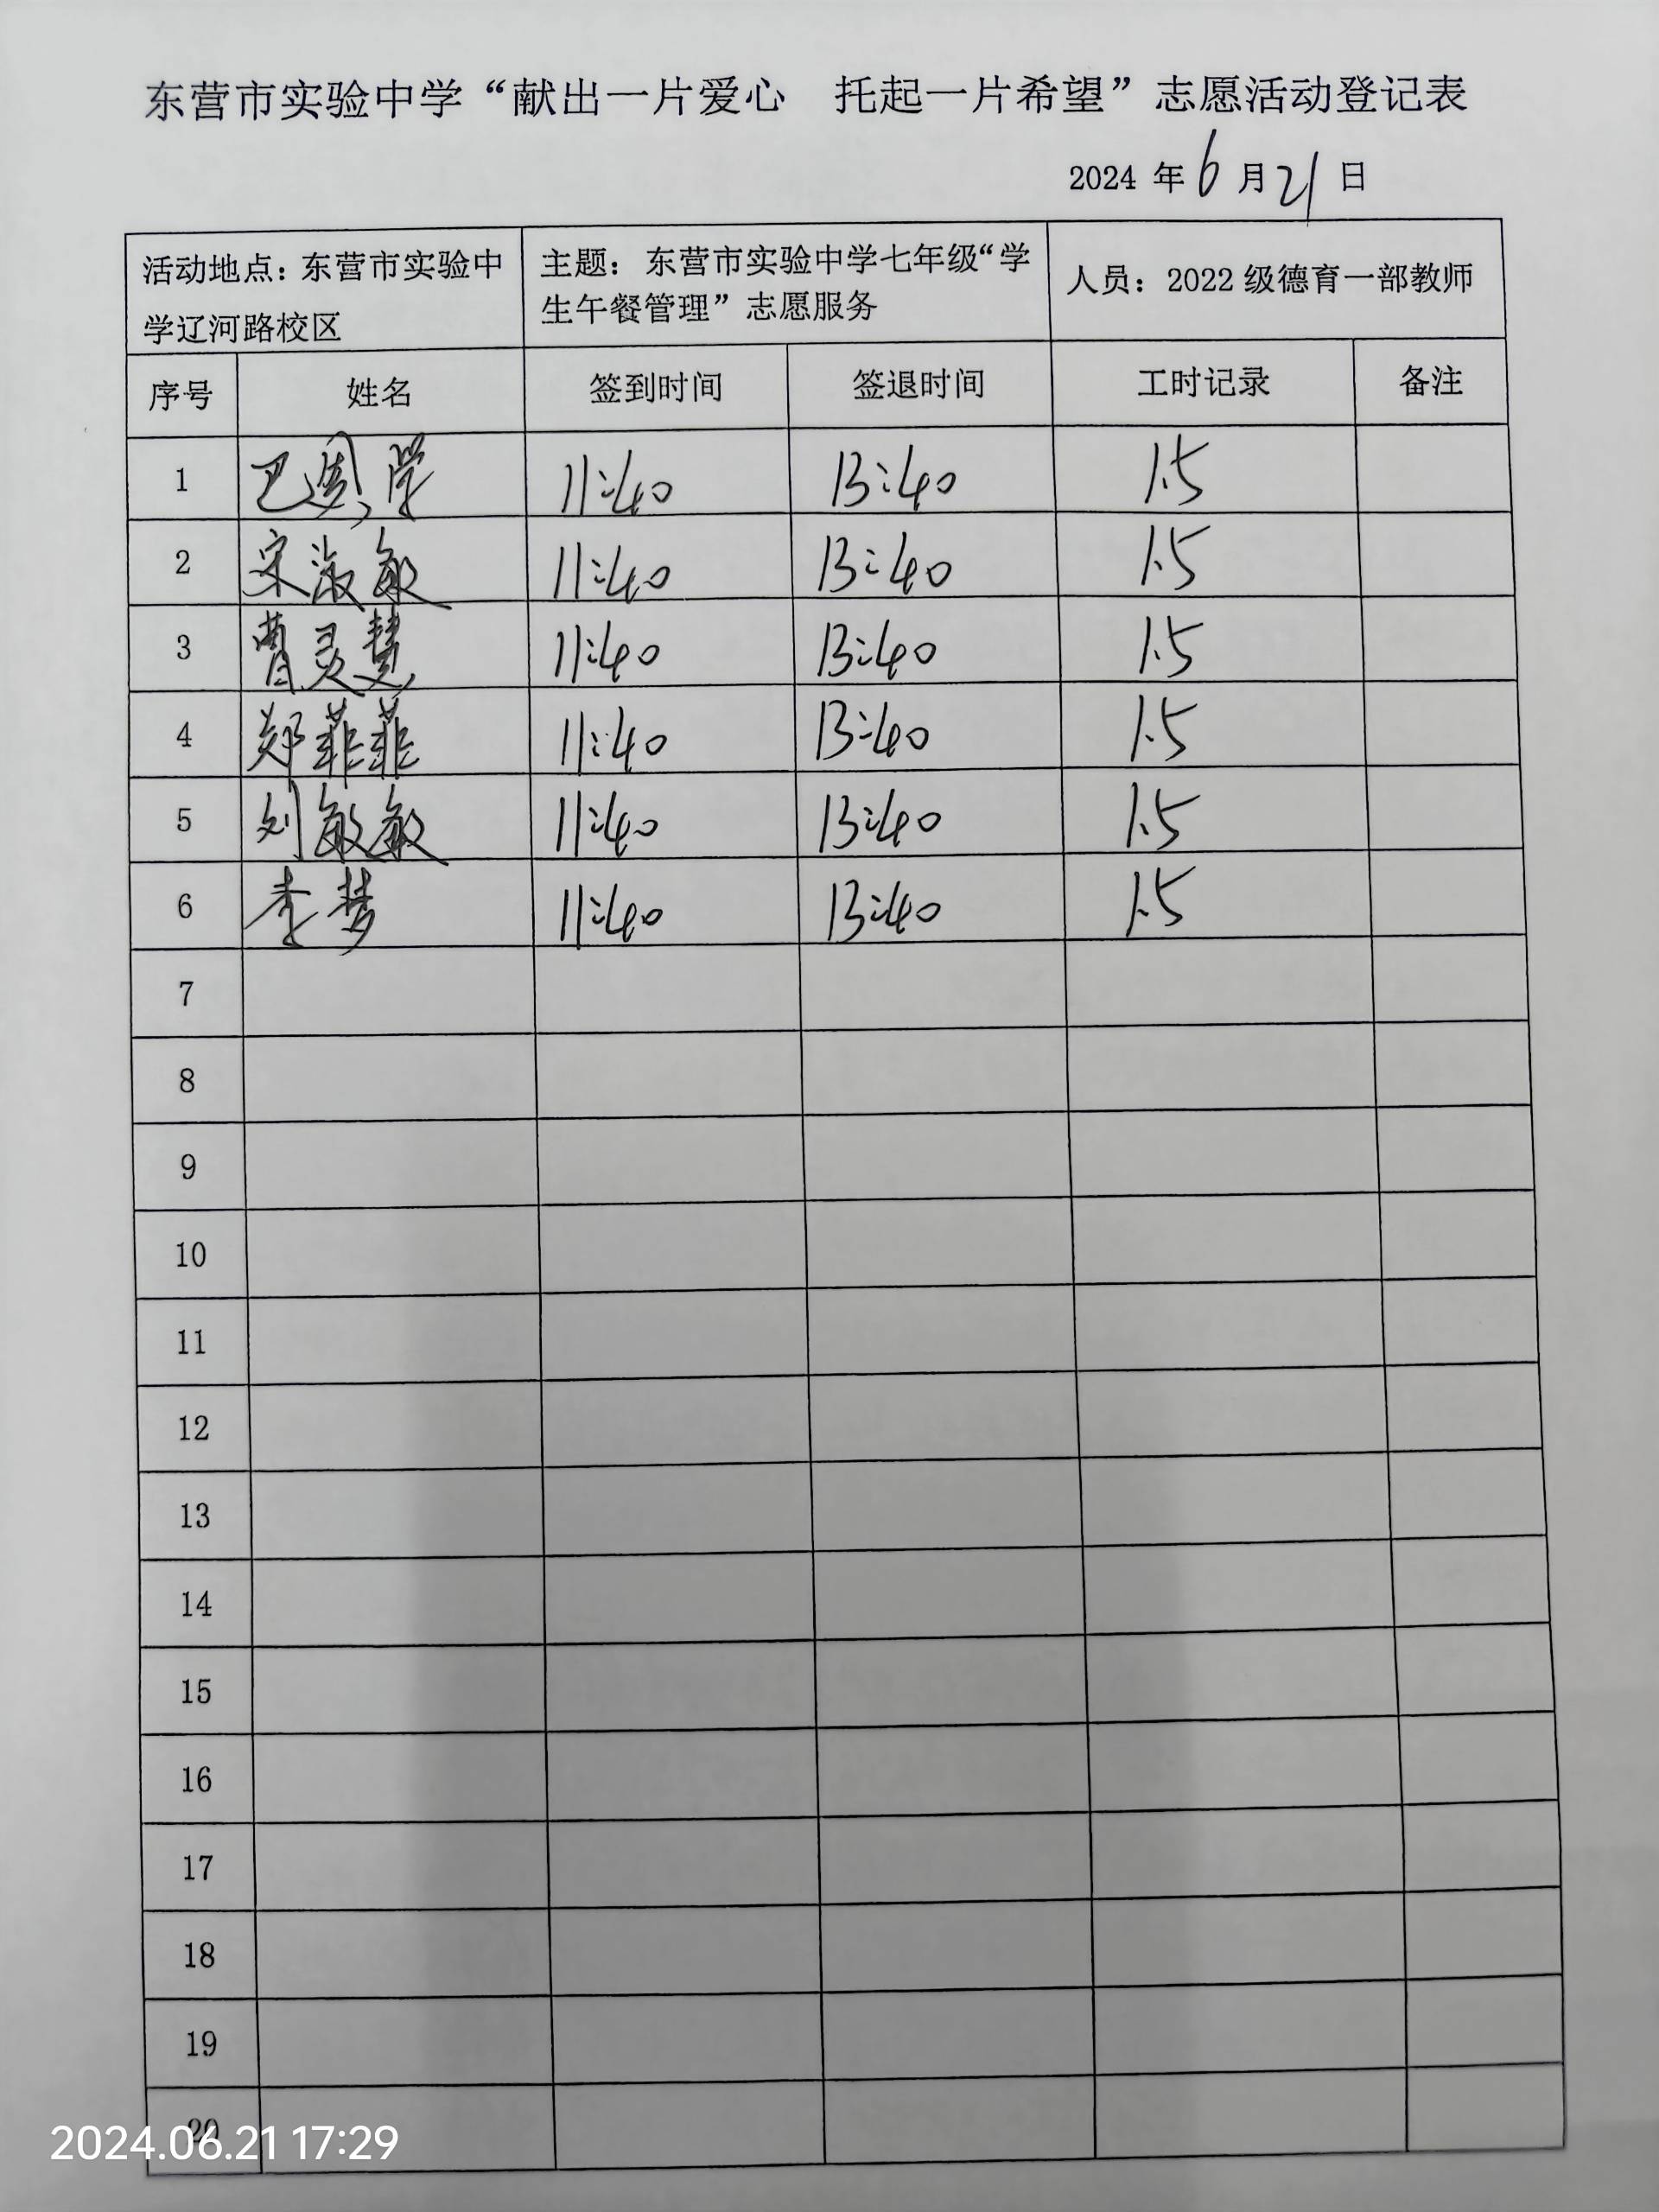 东营市实验中学“献出一片爱心 托起一片希望”志愿活动登记表
2024 年 6 月 21 日
活动地点：东营市实验中
学辽河路校区
主题：东营市实验中学七年级“学
生午餐管理”志愿服务
人员：2022 级德育一部教师
序号 姓名 签到时间 签退时间 工时记录 备注
1 巴 学 11:40 13:40 1.5
2 宋淑敏 11:40 13:40 1.5
3 曹灵慧 11:40 13:40 1.5
4 郑菲菲 11:40 13:40 1.5
5 刘敏敏 11:40 13:40 1.5
6 李梦 11:40 13:40 1.5
7
8
9
10
11
12
13
14
15
16
17
18
19
20
2024.06.21 17:29